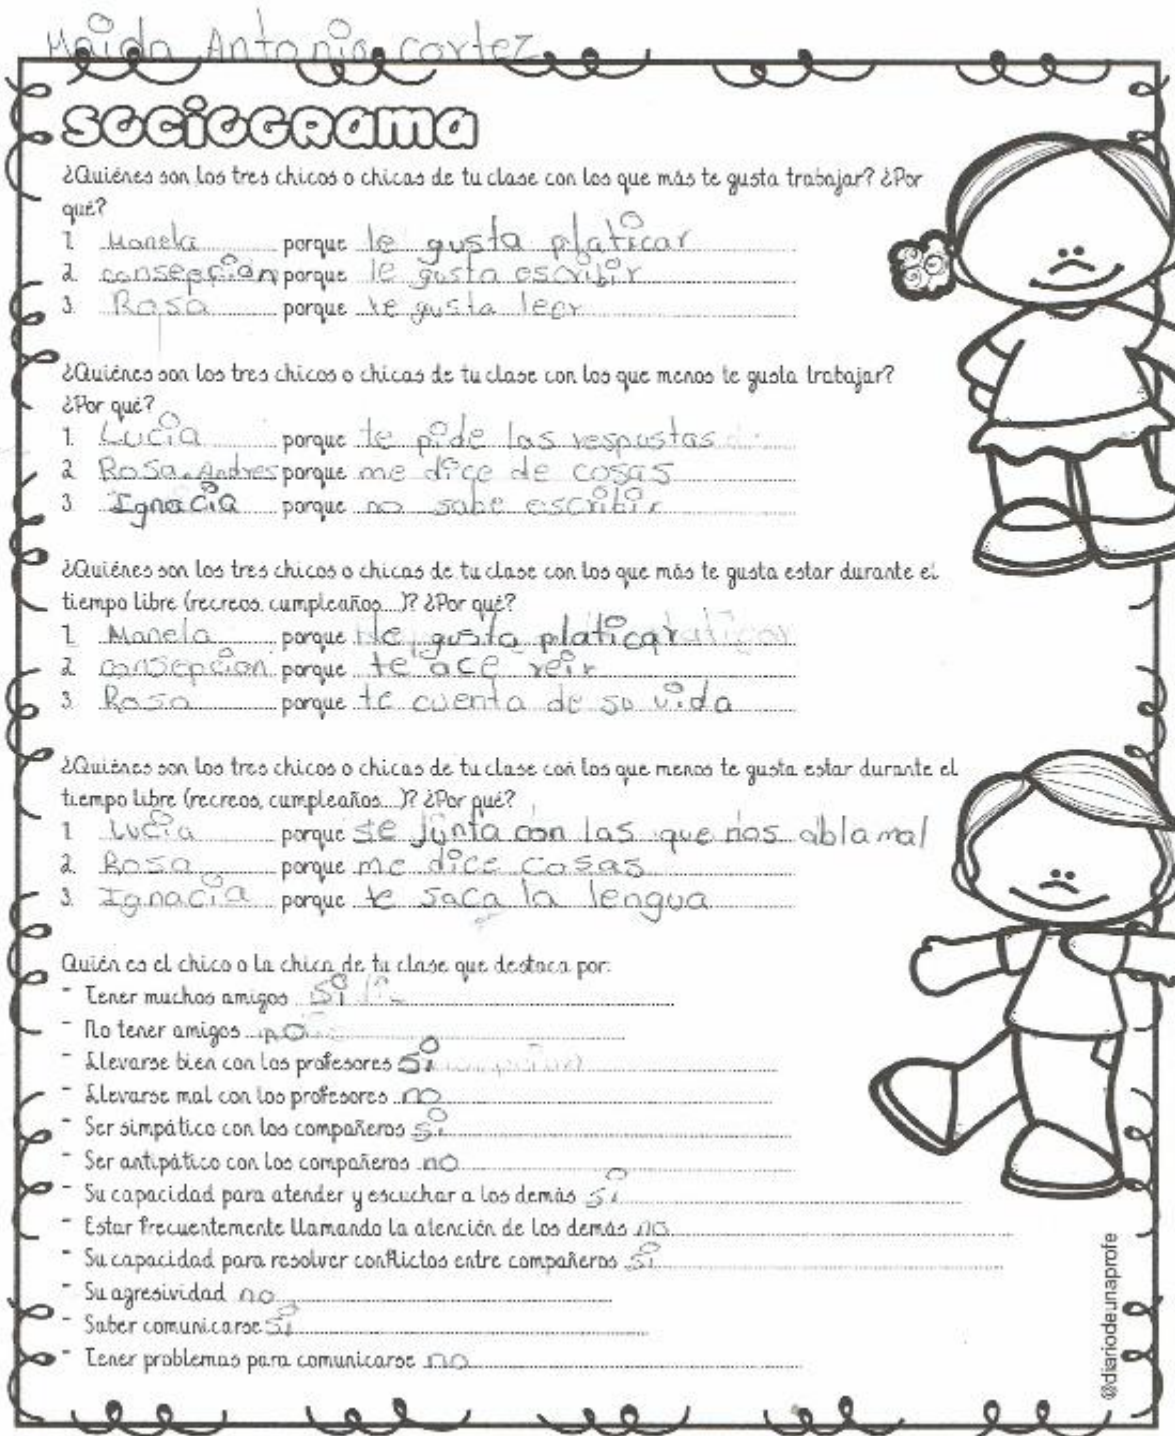 Maida Antonia cortez
SOCIOGRAMA
¿Quiénes son los tres chicos o chicas de tu clase con los que más te gusta trabajar? ¿Por
qué?
1. Manela porque le gusta platicar
2. consepcion porque le gusta escribir
3. Rosa porque te gusta leer
¿Quiénes son los tres chicos o chicas de tu clase con los que menos te gusta trabajar?
¿Por qué?
1. Lucia porque te pide las respustas
2. Rosa Andres porque me dice de cosas
3. Ignacia porque no sabe escribir
¿Quiénes son los tres chicos o chicas de tu clase con los que más te gusta estar durante el
tiempo libre (recreos, cumpleaños...)? ¿Por qué?
1. Manela porque le gusta platicar
2. consepcion porque te ace reir
3. Rosa porque te cuenta de su vida
¿Quiénes son los tres chicos o chicas de tu clase con los que menos te gusta estar durante el
tiempo libre (recreos, cumpleaños...)? ¿Por qué?
1. Lucia porque se junta con las que nos abla mal
2. Rosa porque me dice cosas
3. Ignacia porque te saca la lengua
Quién es el chico o la chica de tu clase que destaca por:
- Tener muchos amigos si
- No tener amigos no
- Llevarse bien con los profesores si
- Llevarse mal con los profesores no
- Ser simpático con los compañeros si
- Ser antipático con los compañeros no
- Su capacidad para atender y escuchar a los demás si
- Estar frecuentemente llamando la atención de los demás no
- Su capacidad para resolver conflictos entre compañeros si
- Su agresividad no
- Saber comunicarse si
- Tener problemas para comunicarse no
@diariodeunaprofe